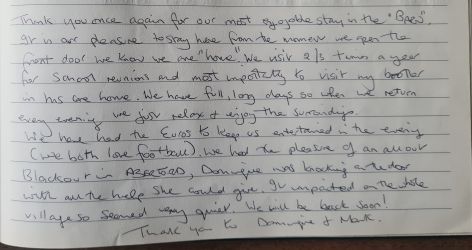 Thank you once again for our most enjoyable stay in the "Bees".
It is our pleasure to stay here from the moment we open the
front door we know we are "home". We visit 2/3 times a year
for School reunions and most importantly to visit my brother
in his care home. We have full, long days so when we return
every evening we just relax & enjoy the surroundings.
We have had the Euros to keep us entertained in the evening
(we both love football). We had the pleasure of an all out
Blackout in Dominique was knocking on the door
with all the help she could give. It impacted on the whole
village so seemed very quiet. We will be back soon!
Thank you to Dominique & Mark.